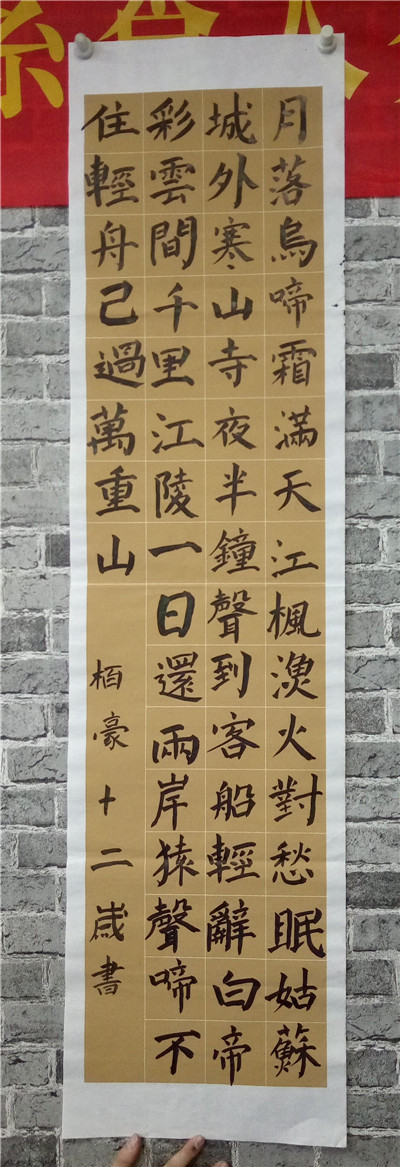 月落烏啼霜滿天江楓漁火對愁眠姑蘇
城外寒山寺夜半鐘聲到客船輕辭白帝
彩雲間千里江陵一日還兩岸猿聲啼不
住輕舟己過萬重山
栢豪十二歲書